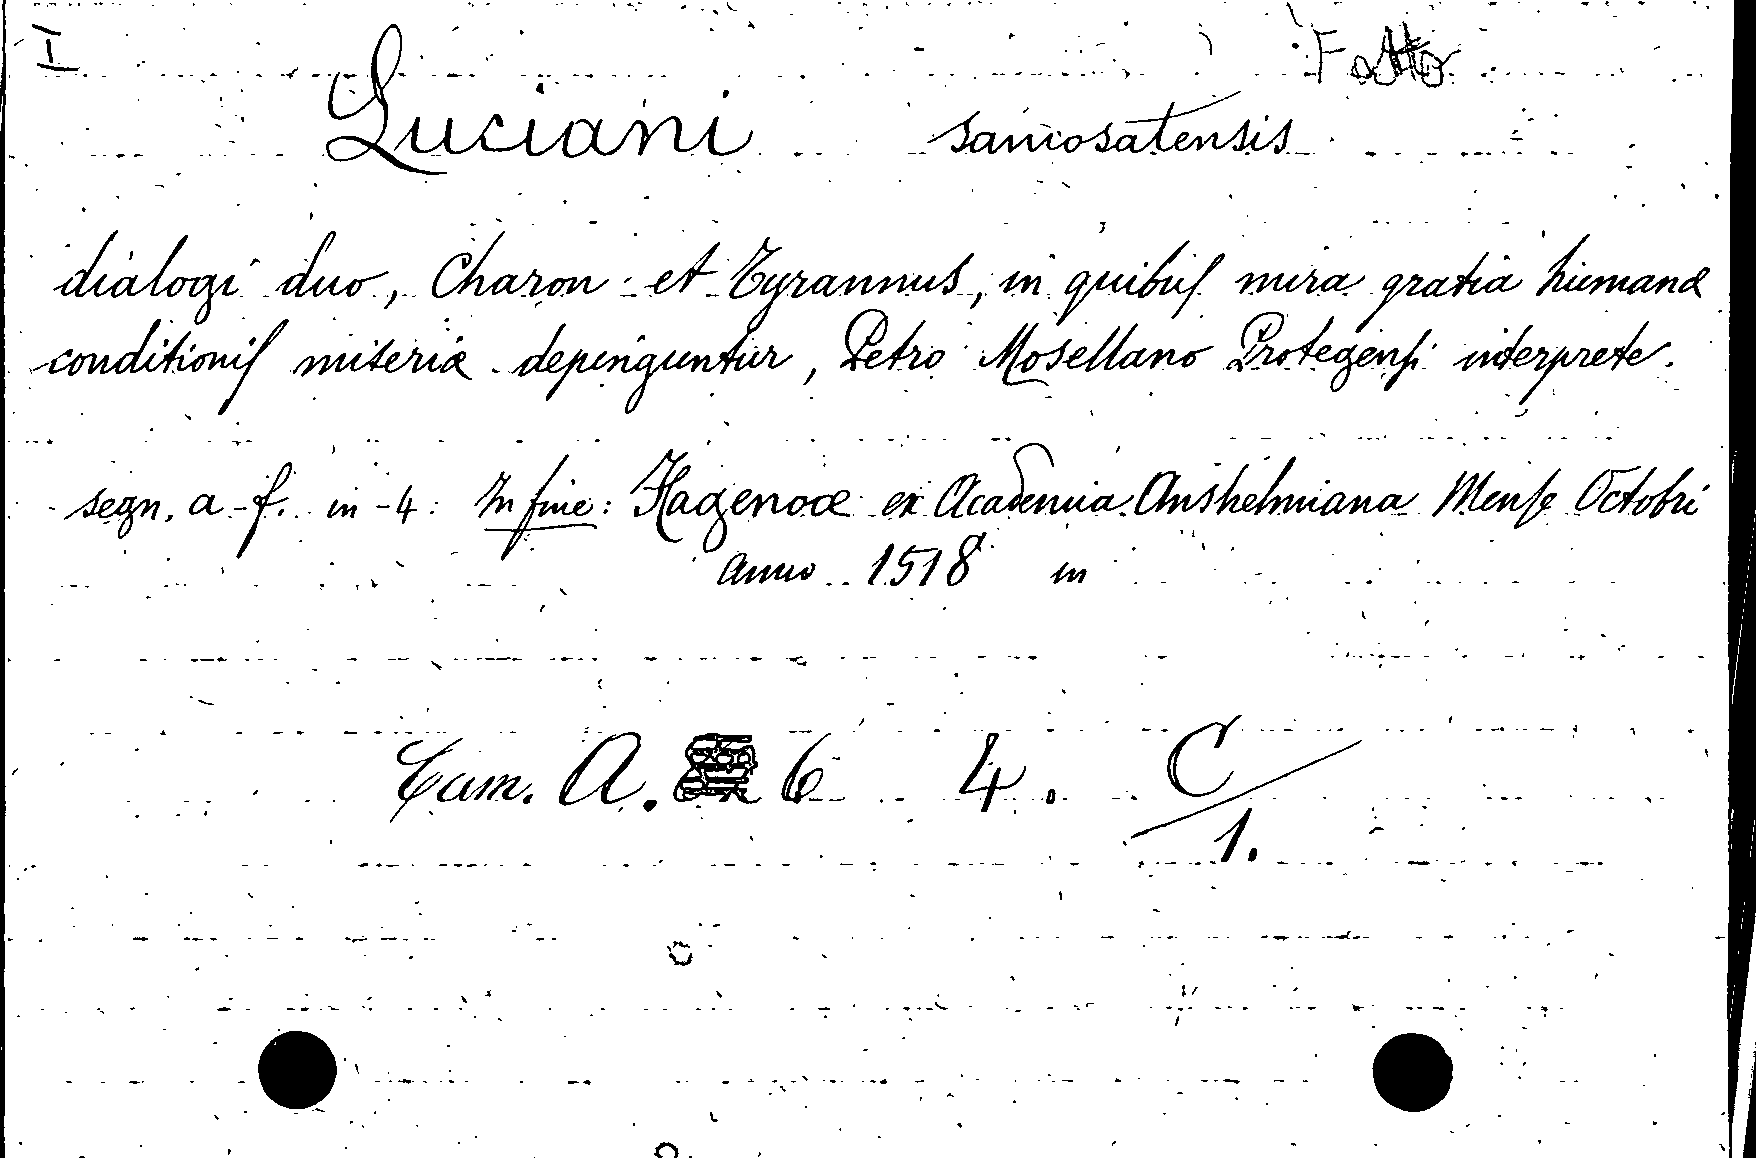 I Fatto
Luciani samosatensis
dialogi duo, Charon et Tyrannus, in quibuſ mira gratia humanæ
conditioniſ miseriæ depinguntur, Petro Mosellano Protegenſi interprete.
segn. a-f. in-4: In fine: Hagenoæ ex Academia Anshelmiana Menſe Octobri
anno 1518 in
Cam. A. 6 4. C/1.